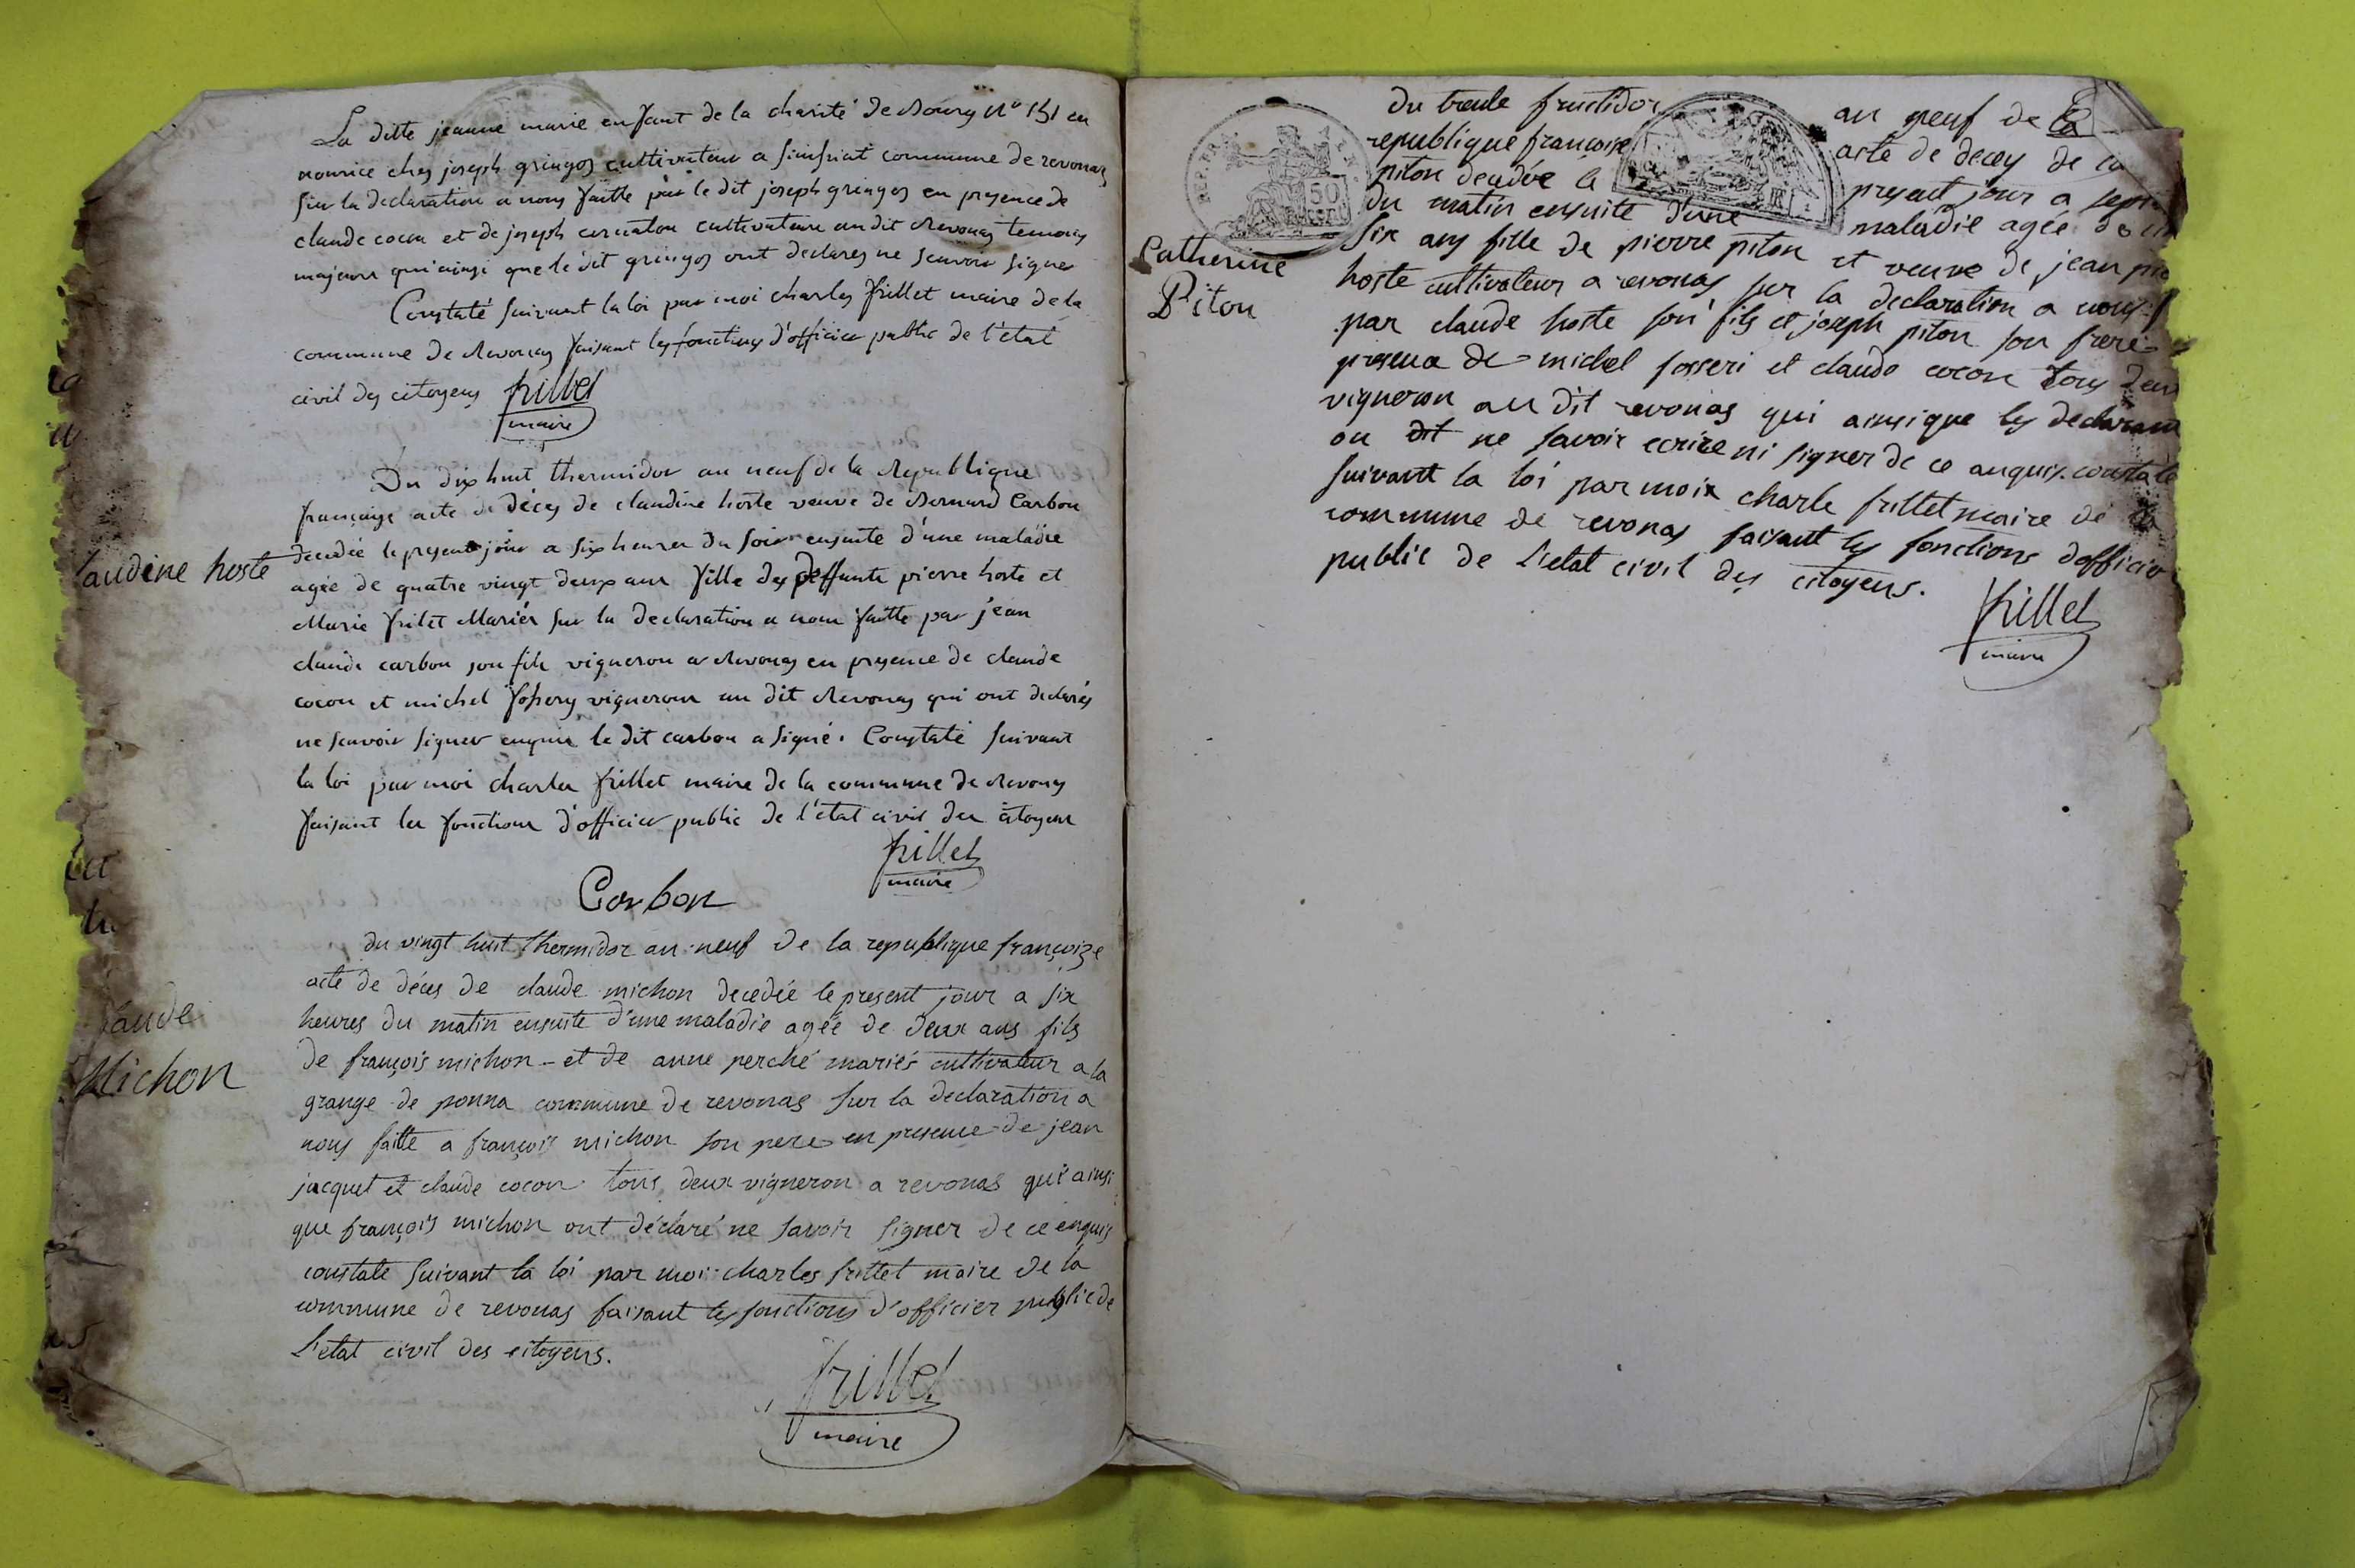 La ditte jeanne marie enfant de la charité de Bourg N° 151 en
nourice chez joseph gringoz cultivateur a simsriat commune de revonas
sur la declaration a nous faitte par le dit joseph gringoz en presence de
claude cocon et de joseph cultivateurs au dit Revonas temoins
majeurs qui ainsi que le dit gringoz ont declares ne scavoir signer
Constaté suivant la loi par moi charles frillet maire de la
commune de Revonas faisant les fonctions d'officier public de l'état
civil des citoyens frillet
maire
Du dix huit thermidor an neuf de la Republique
française acte de déces de claudine hoste veuve de Bernard Carbon
decedée le present jour a six heures du soir ensuite d'une maladie
audine hoste
agée de quatre vingt deux ans fille des deffunts pierre hoste et
Marie frilet Mariés sur la declaration a nous faitte par jean
claude carbon son fils vigneron a Revonas en presence de claude
cocon et michel fossery vignerons au dit Revonas qui ont declarés
ne scavoir signer enquis le dit carbon a signé. Constaté suivant
la loi par moi charles frillet maire de la commune de Revonas
faisant les fonctions d'officier public de l'état civil des citoyens
frillet
maire
Carbon
du vingt huit thermidor an neuf de la republique françoize
acte de déces de claude michon decedée le present jour a six
aude
heures du matin ensuite d'une maladie agée de deux ans fils
de françois michon - et de anne perché mariés cultivateur a la
Michon
grange de ponna commune de revonas sur la declaration a
nous faitte a françois michon son pere en presence de jean
jacquet et claude cocon tous deux vigneron a revonas qui ainsi
que françois michon ont déclaré ne savoir signer de ce enquis
constaté suivant la loi par moi charles frillet maire de la
commune de revonas faisant les fonctions d'officier public de
l'etat civil des citoyens.
frillet
maire
du trente fructidor an neuf de la
republique françoise acte de deces de
piton decedée le present jour a sept
du matin ensuite d'une maladie agée de
Catherine
Piton
six ans fille de pierre piton et veuve de jean
hoste cultivateur a revonas sur la declaration a nous
par claude hoste son fils et joseph piton son frere
presence de michel fosseri et claude cocon tous deux
vigneron au dit revonas qui ainsi que les declarant
on dit ne savoir ecrire ni signer de ce anquis. constaté
suivant la loi par moi charle frillet maire de la
commune de revonas faisant les fonctions d'officier
public de l'etat civil des citoyens.
frillet
maire
REP. FRA.
50